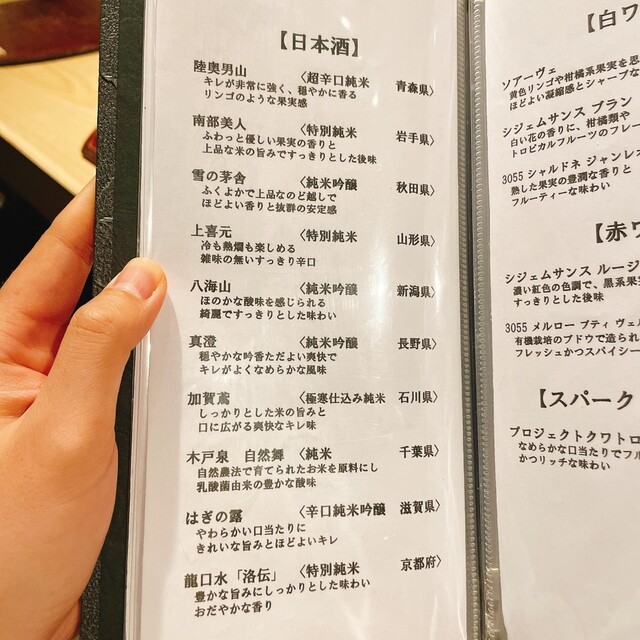 【日本酒】
陸奥男山 〈超辛口純米 青森県〉
キレが非常に強く、穏やかに香る
リンゴのような果実感
南部美人 〈特別純米 岩手県〉
ふわっと優しい果実の香りと
上品な米の旨みですっきりとした後味
雪の茅舎 〈純米吟醸 秋田県〉
ふくよかで上品なのど越しで
ほどよい香りと抜群の安定感
上喜元 〈特別純米 山形県〉
冷も熱燗も楽しめる
雑味の無いすっきり辛口
八海山 〈純米吟醸 新潟県〉
ほのかな酸味を感じられる
綺麗ですっきりとした味わい
真澄 〈純米吟醸 長野県〉
穏やかな吟香ただよい爽快で
キレがよくなめらかな風味
加賀鳶 〈極寒仕込み純米 石川県〉
しっかりとした米の旨みと
口に広がる爽快なキレ味
木戸泉 自然舞 〈純米 千葉県〉
自然農法で育てられたお米を原料にし
乳酸菌由来の豊かな酸味
はぎの露 〈辛口純米吟醸 滋賀県〉
やわらかい口当たりに
きれいな旨みとほどよいキレ
龍口水「洛伝」 〈特別純米 京都府〉
豊かな旨みにしっかりとした味わい
おだやかな香り
【白ワ
ソアーヴェ
黄色リンゴや柑橘系果実を思
ほどよい凝縮感とシャープな
シジェムサンス ブラン
白い花の香りに、柑橘類や
トロピカルフルーツのフレー
3055 シャルドネ ジャンレオ
熟した果実の豊潤な香りと
フルーティーな味わい
【赤ワ
シジェムサンス ルージ
濃い紅色の色調で、黒系果
すっきりとした後味
3055 メルロー プティ ヴェル
有機栽培のブドウで造られ
フレッシュかつスパイシー
【スパーク
プロジェクトクワトロ
なめらかな口当たりでフル
かつリッチな味わい